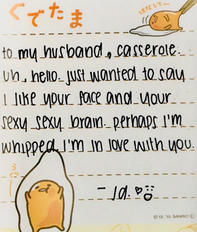 ぐでたま
to my husband, casserole.
uh, hello. just wanted to say
I like your face and your
sexy sexy brain. perhaps I'm
whipped. I'm in love with you.
- Jd.